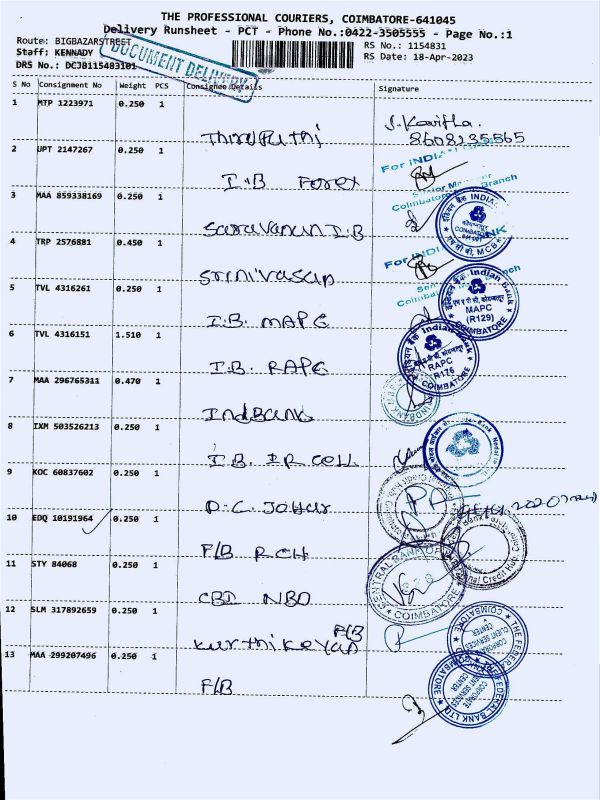 THE PROFESSIONAL COURIERS, COIMBATORE-641045
Delivery Runsheet - PCT - Phone No.:0422-3505555 - Page No.:1
Route: BIGBAZARSTREET
RS No.: 1154831
Staff: KENNADY
RS Date: 18-Apr-2023
DRS No.: DCJB115483101
DOCUMENT DELIVERY
S No Consignment No Weight PCS Consignee Details Signature
1 MTP 1223971 0.250 1
Thirupathi J. Kavitha
8608235565
2 UPT 2147267 0.250 1
For INDIAN
I.B Forex
Coimbatore Branch
3 MAA 859338169 0.250 1
Saravanan I.B
4 TRP 2576881 0.450 1
For INDIAN BANK
Srinivasan
5 TVL 4316261 0.250 1
I.B. MAPC
Indian Bank
MAPC
(R129)
COIMBATORE
6 TVL 4316151 1.510 1
I.B. RAPC
Indian Bank
RAPC
R176
COIMBATORE
7 MAA 296765311 0.470 1
IndBank
INDBANK
8 IXM 503526213 0.250 1
I.B. IR Cell
9 KOC 60837602 0.250 1
10 EDQ 10191964 0.250 1
F/B RCH
11 STY 84068 0.250 1
CBI NBO
CENTRAL BANK OF
COIMBATORE
12 SLM 317892659 0.250 1
Karthikeyan F/B
THE FEDERAL
CORPORATE
CLIENT SERVICES
CENTER
COIMBATORE
13 MAA 299207496 0.250 1
F/B
THE FEDERAL BANK LTD
COIMBATORE